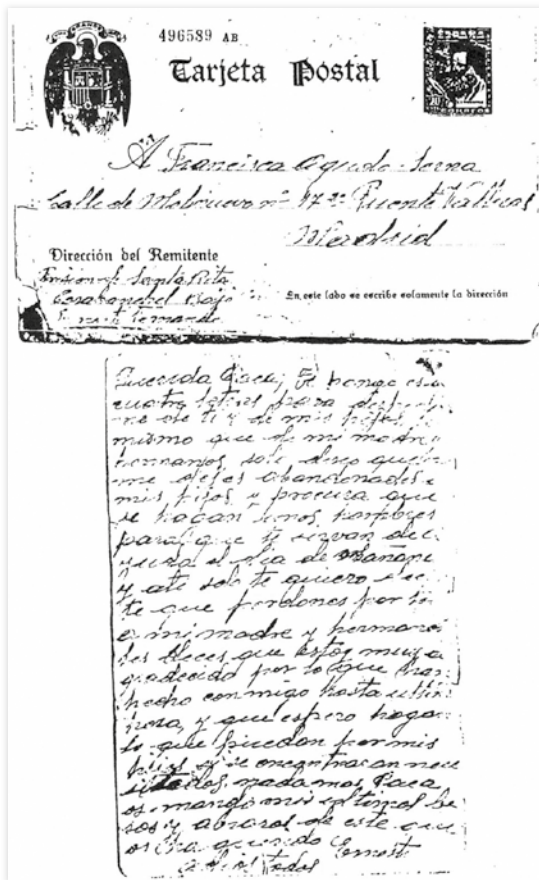 496589 AB
Tarjeta Postal
A Francisca Agudo Serna
Calle de Molinuevo nº 17 Puente Vallecas
Madrid
Dirección del Remitente
Prision de Santa Rita
Carabanchel Bajo
Ernesto
En este lado se escribe solamente la dirección
Querida Paca; Te pongo estas
cuatro letras para
me de ti y de mis hijos, lo
mismo que de mi madre y
hermanos, solo deseo que no
me dejes abandonados a
mis hijos y procura que
se hagan unos hombres
para que te sirvan de
el dia de mañana
y ati solo te quiero
te que perdones por
a mi madre y hermanos
les dices que estoy muy a
gradecido por lo que han
hecho conmigo hasta ultima
hora, y que espero hagan
lo que puedan por mis
hijos si se encontraran nece
sitados, nada mas Paca
os mando mis ultimos be
sos y abrazos de este que
os ha querido Ernesto
adios todos